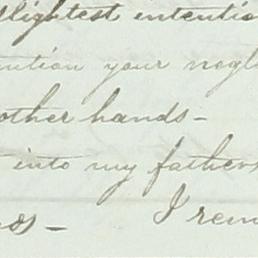 slightest intentio
ntion your negl
other hands-
t into my fathers
ds- I rem